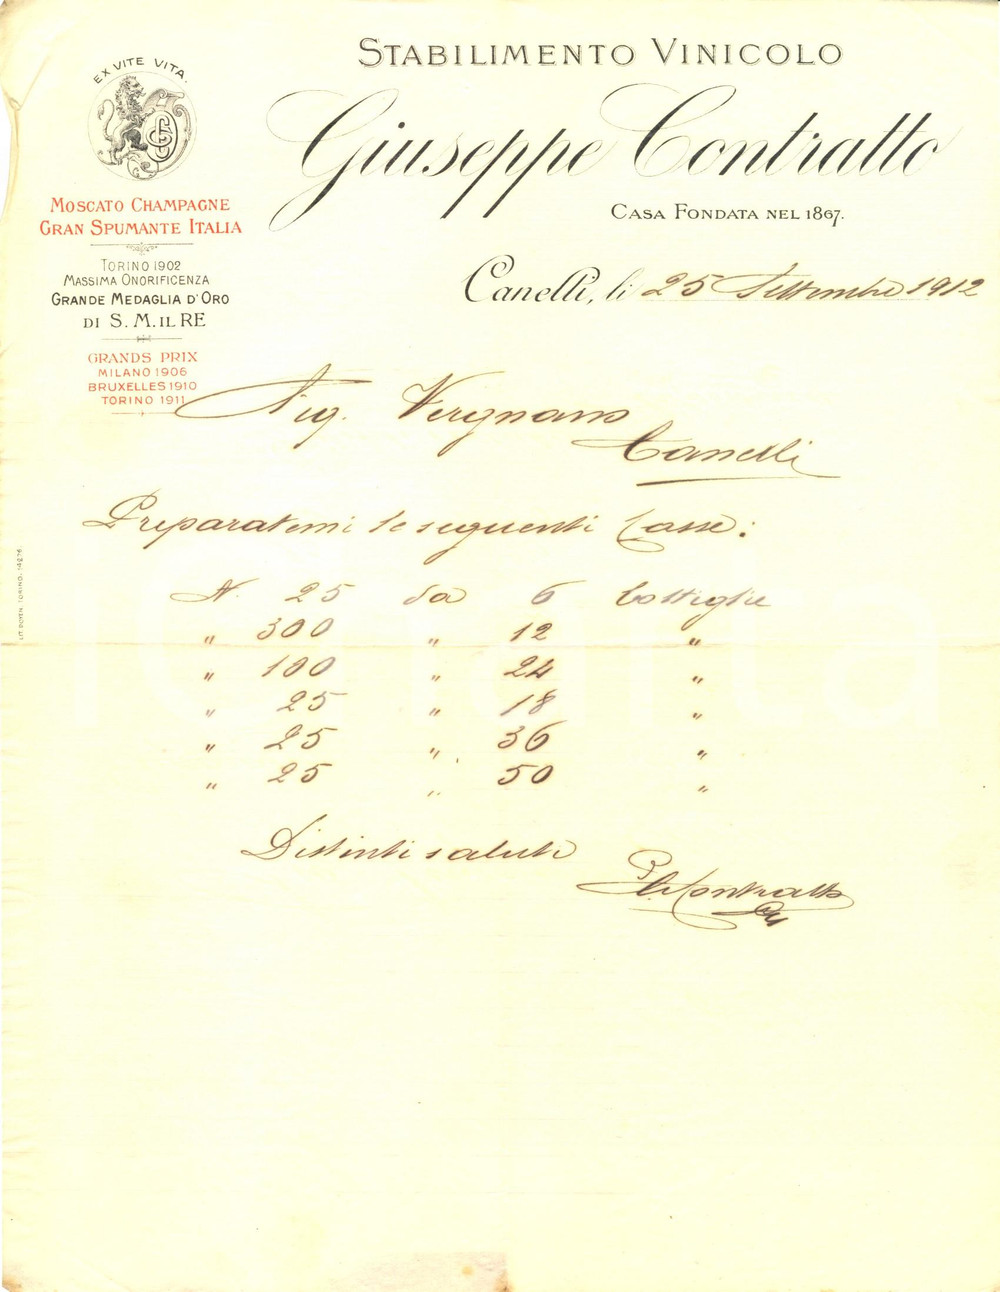 STABILIMENTO VINICOLO
Giuseppe Contratto
CASA FONDATA NEL 1867.
EX VITE VITA.
MOSCATO CHAMPAGNE
GRAN SPUMANTE ITALIA
TORINO 1902
MASSIMA ONORIFICENZA
GRANDE MEDAGLIA D'ORO
DI S. M. IL RE
GRANDS PRIX
MILANO 1906
BRUXELLES 1910
TORINO 1911
Canelli, li 25 Settembre 1912
Sig. Vergnano
Canelli
Preparatemi le seguenti Casse:
N. 25 da 6 bottiglie
" 300 " 12 "
" 100 " 24 "
" 25 " 18 "
" 25 " 36 "
" 25 " 50 "
Distinti saluti
Contratto
LIT. DOYEN. TORINO.